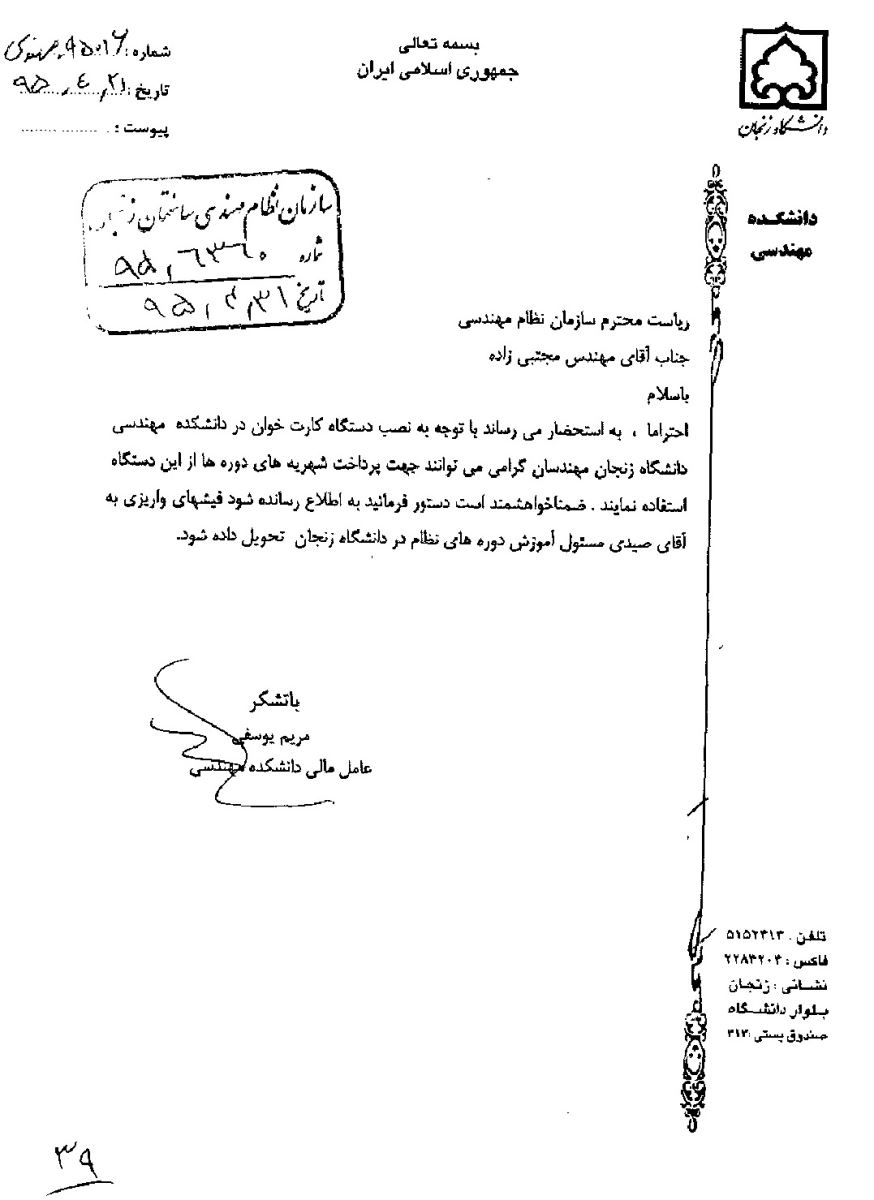 بسمه تعالی
جمهوری اسلامی ایران
شماره :
تاریخ : ۹۵,۴,۲۱
پیوست :
دانشگاه زنجان
دانشکده
مهندسی
سازمان نظام مهندسی ساختمان زنجان
شماره ۹۵,۶۳۶۰
تاریخ ۹۵,۴,۳۱
ریاست محترم سازمان نظام مهندسی
جناب آقای مهندس مجتبی زاده
باسلام
احتراما ، به استحضار می رساند با توجه به نصب دستگاه کارت خوان در دانشکده مهندسی
دانشگاه زنجان مهندسان گرامی می توانند جهت پرداخت شهریه های دوره ها از این دستگاه
استفاده نمایند . ضمناخواهشمند است دستور فرمائید به اطلاع رسانده شود فیشهای واریزی به
آقای صیدی مسئول آموزش دوره های نظام در دانشگاه زنجان تحویل داده شود.
باتشکر
مریم یوسفی
عامل مالی دانشکده مهندسی
تلفن : ۵۱۵۲۴۱۳
فاکس : ۲۲۸۳۲۰۴
نشانی : زنجان
بلوار دانشگاه
صندوق پستی :۳۱۳
۳۹